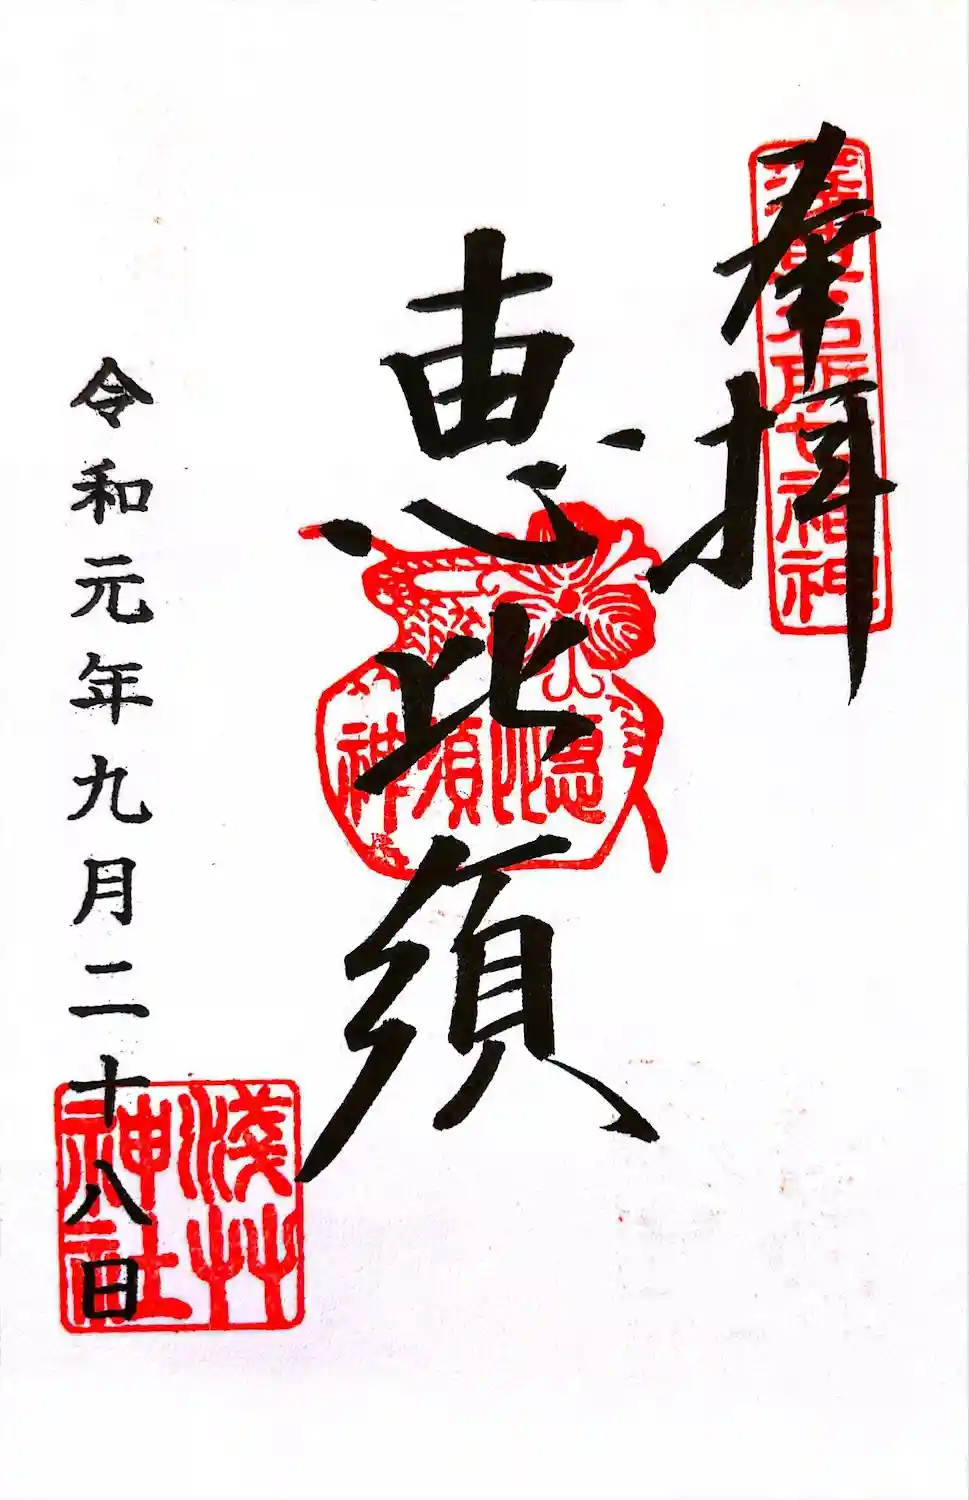 奉拝
浅草名所七福神
恵比須
恵比須神
令和元年九月二十八日
淺草神社